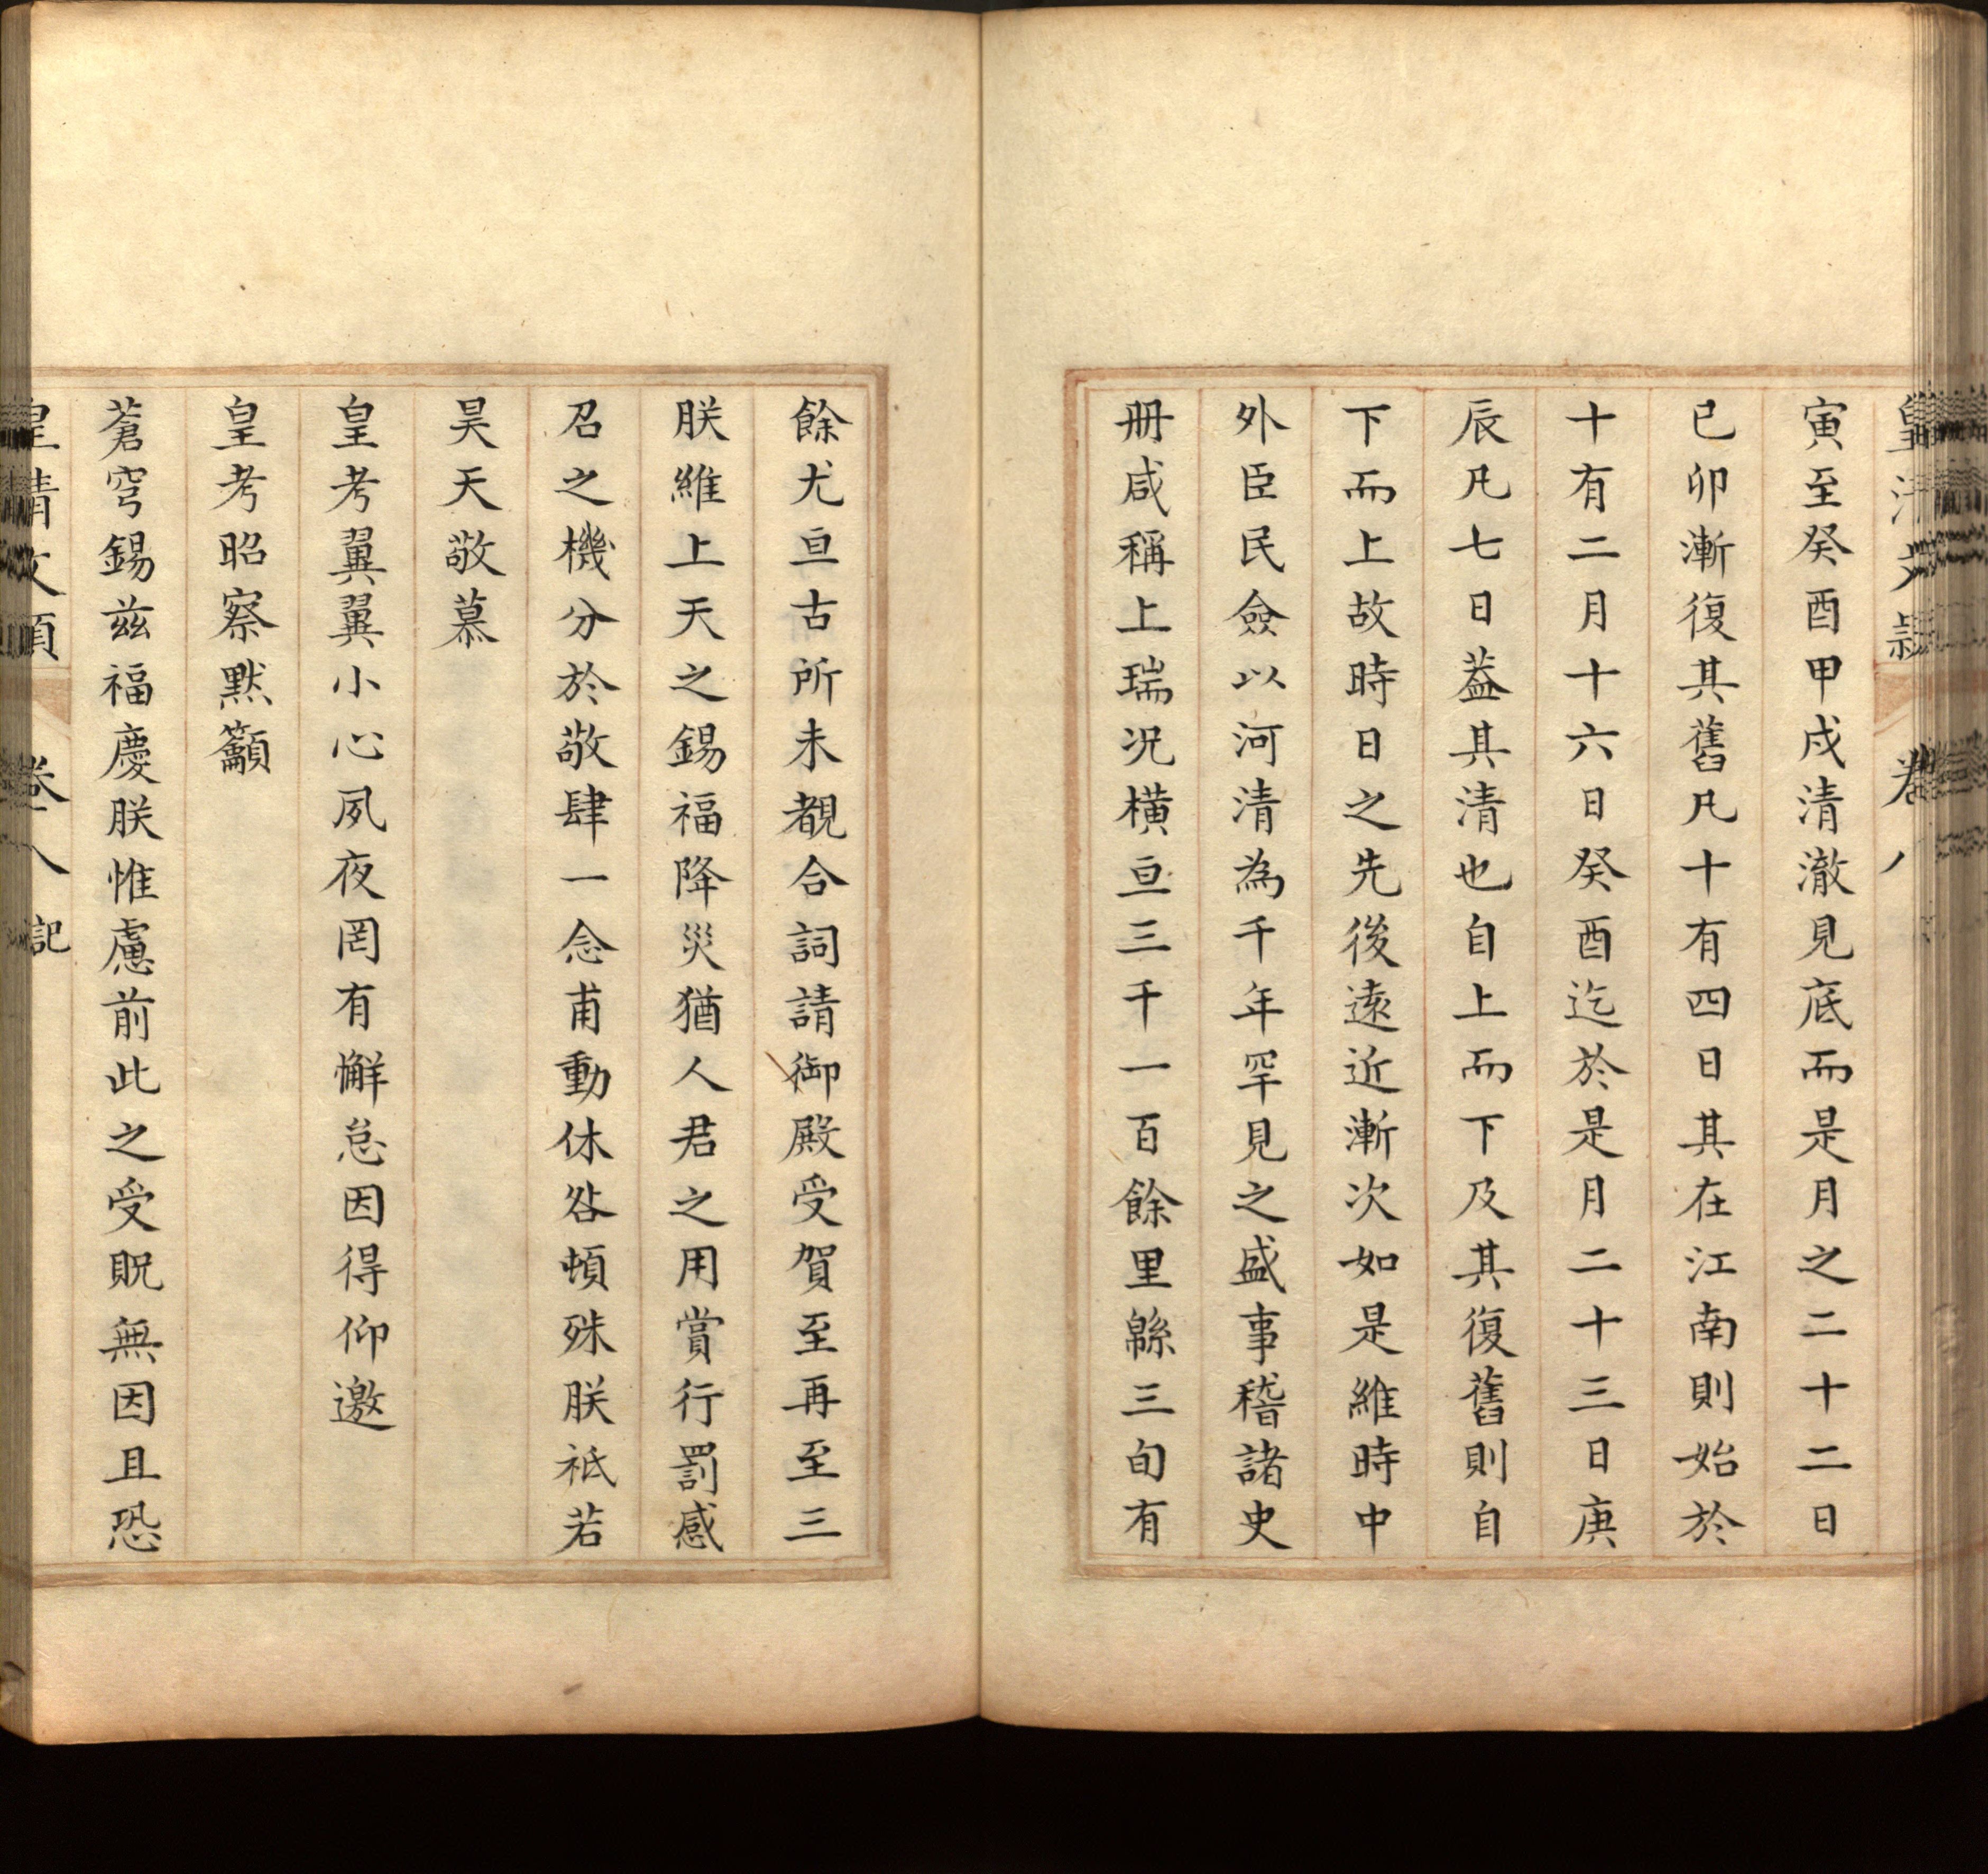 寅至癸酉甲戌清澈見底而是月之二十二日
已卯漸復其舊凡十有四日其在江南則始於
十有二月十六日癸酉迄於是月二十三日庚
辰凡七日葢其清也自上而下及其復舊則自
下而上故時日之先後遠近漸次如是維時中
外臣民僉以河清為千年罕見之盛事稽諸史
冊咸稱上瑞况橫亘三千一百餘里緜三旬有
餘尤亘古所未覩合詞請御殿受賀至再至三
朕維上天之錫福降災猶人君之用賞行罰感
召之機分於敬肆一念甫動休咎頓殊朕祗若
昊天敬慕
皇考翼翼小心夙夜罔有懈怠因得仰邀
皇考昭察黙籲
蒼穹錫兹福慶朕惟慮前此之受貺無因且恐